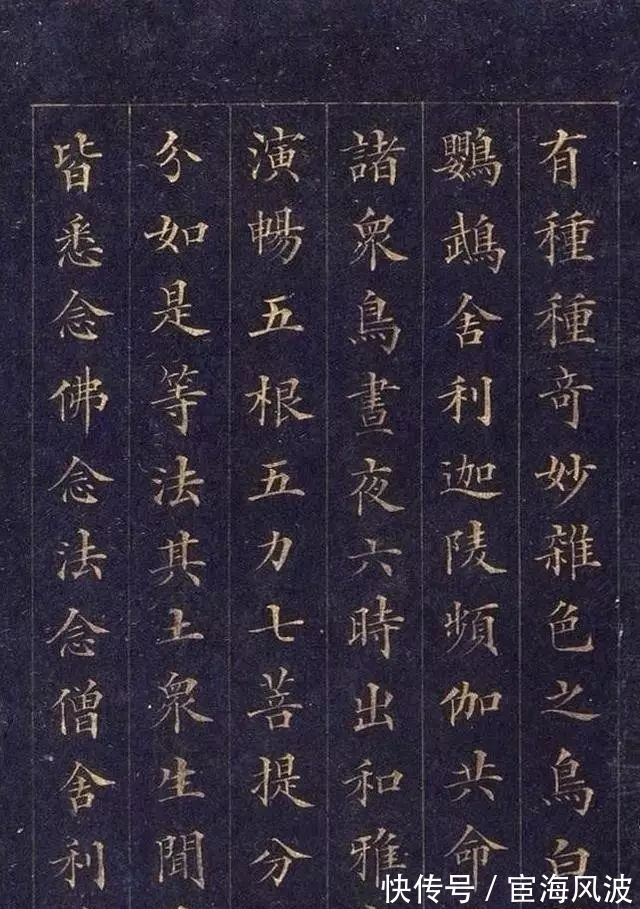 有種種奇妙雜色之鳥白
鸚鵡舍利迦陵頻伽共命
諸衆鳥晝夜六時出和雅
演暢五根五力七菩提分
分如是等法其土衆生聞
皆悉念佛念法念僧舍利
快传号/宦海风波